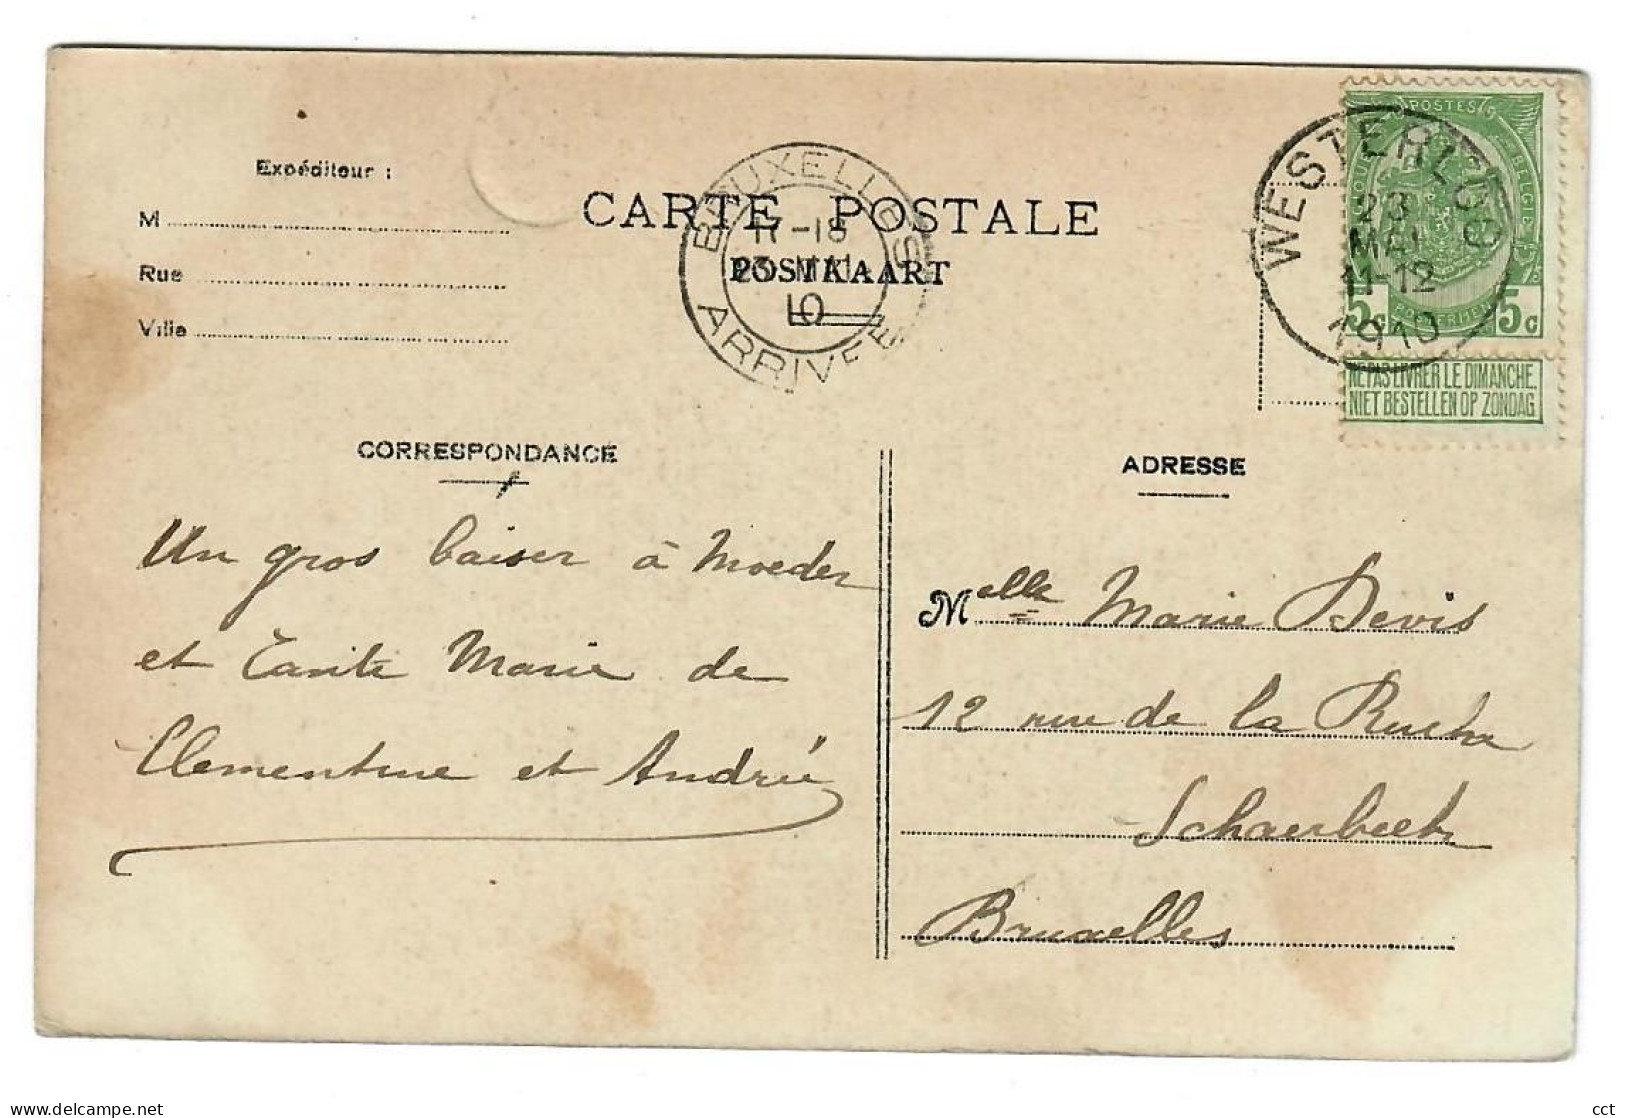 Expéditeur :
M
Rue
Ville
CARTE POSTALE
POSTKAART
BRUXELLES
11-18
23 MAI
10
ARRIVEE
WESTERLOO
23
MEI
11-12
1910
POSTES
BELGIE
5c 5c
NE PAS LIVRER LE DIMANCHE
NIET BESTELLEN OP ZONDAG
CORRESPONDANCE
Un gros baiser à Moeder
et Tante Marie de
Clementine et Andrée
ADRESSE
Melle Marie Devis
12 rue de la Ruche
Schaerbeek
Bruxelles
delcampe.net
cct